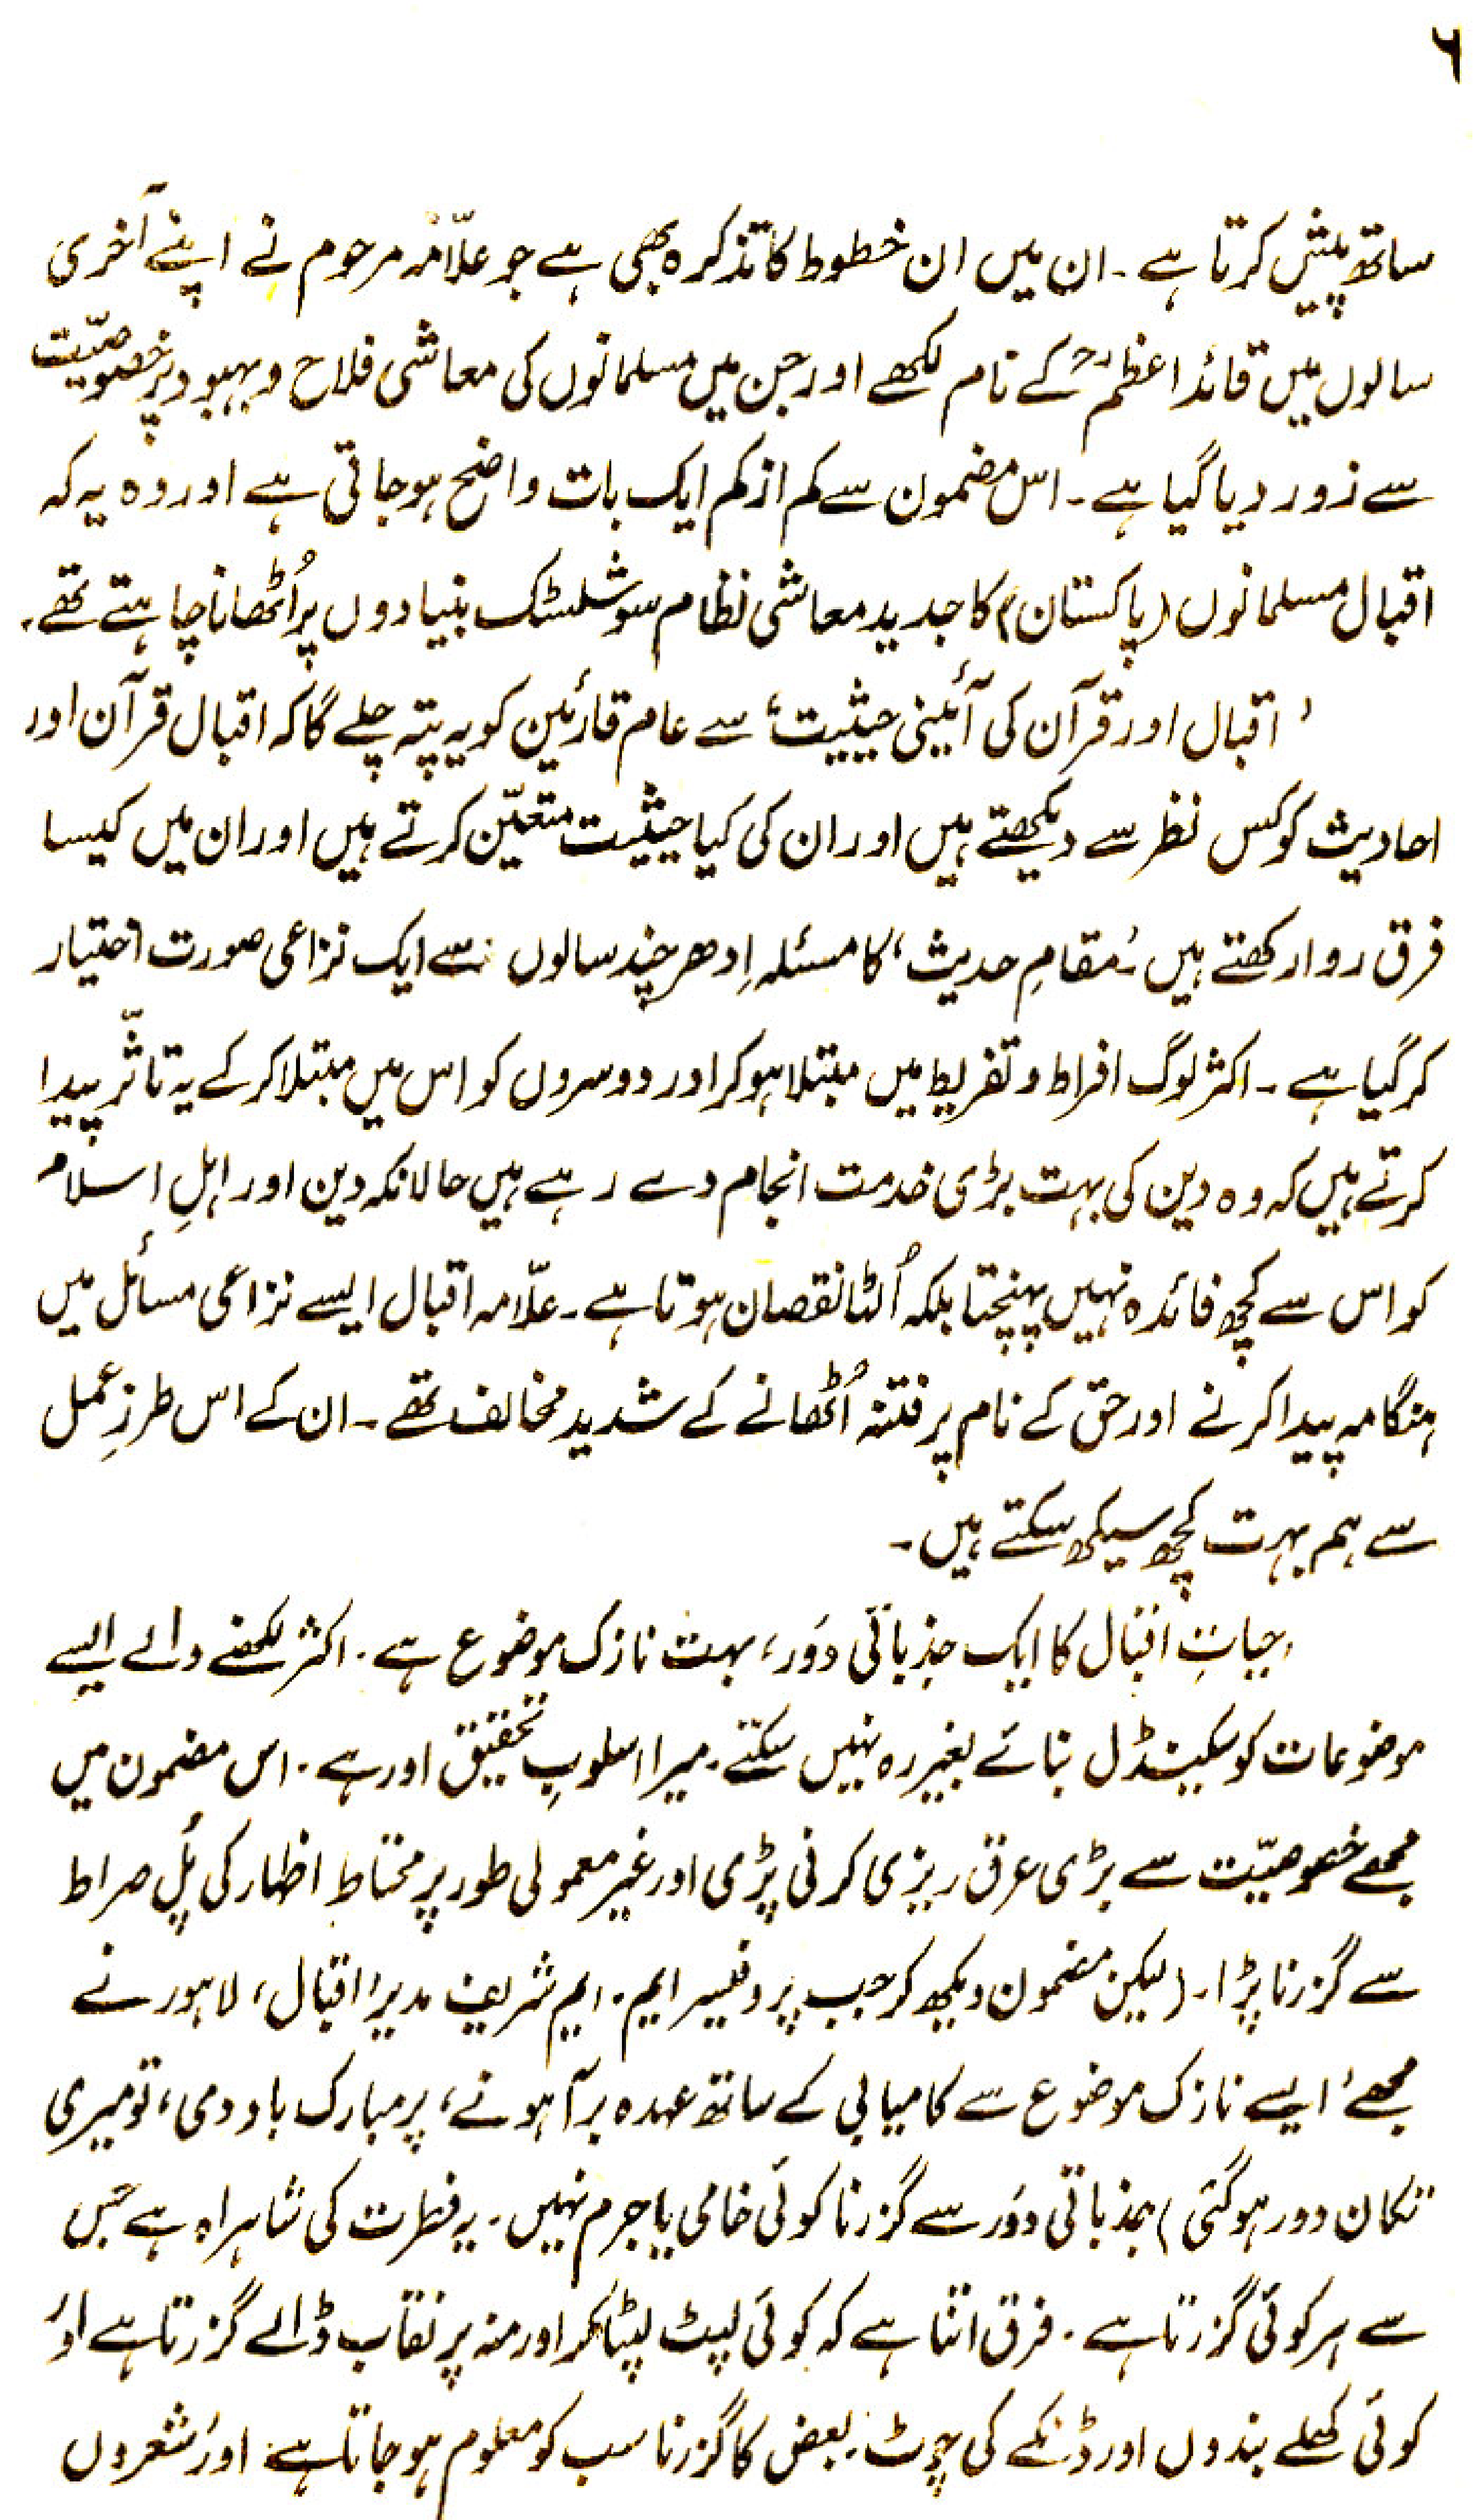 ۶
ساتھ پیش کرتا ہے ۔ ان میں ان خطوط کا تذکرہ بھی ہے جو علّامہ مرحوم نے اپنے آخری
سالوں میں قائد اعظمؒ کے نام لکھے اور جن میں مسلمانوں کی معاشی فلاح و بہبود پر خصوصیّت
سے زور دیا گیا ہے ۔ اس مضمون سے کم از کم ایک بات واضح ہو جاتی ہے اور وہ یہ کہ
اقبال مسلمانوں (پاکستان) کا جدید معاشی نظام سوشلسٹک بنیادوں پر اُٹھانا چاہتے تھے ۔
’ اقبال اور قرآن کی آئینی حیثیت‘ سے عام قارئین کو یہ پتہ چلے گا کہ اقبال قرآن اور
احادیث کو کس نظر سے دیکھتے ہیں اور ان کی کیا حیثیت متعیّن کرتے ہیں اور ان میں کیسا
فرق روا رکھتے ہیں ۔ ’مقامِ حدیث‘ کا مسئلہ اِدھر چند سالوں سے ایک نزاعی صورت اختیار
کر گیا ہے ۔ اکثر لوگ افراط و تفریط میں مبتلا ہو کر اور دوسروں کو اس میں مبتلا کر کے یہ تاثّر پیدا
کرتے ہیں کہ وہ دین کی بہت بڑی خدمت انجام دے رہے ہیں حالانکہ دین اور اہلِ اسلام
کو اس سے کچھ فائدہ نہیں پہنچتا بلکہ اُلٹا نقصان ہوتا ہے ۔ علّامہ اقبال ایسے نزاعی مسائل میں
ہنگامہ پیدا کرنے اور حق کے نام پر فتنہ اُٹھانے کے شدید مخالف تھے ۔ ان کے اس طرزِ عمل
سے ہم بہت کچھ سیکھ سکتے ہیں ۔
’حیاتِ اقبال کا ایک جذباتی دَور‘ بہت نازک موضوع ہے ۔ اکثر لکھنے والے ایسے
موضوعات کو سکینڈل بنائے بغیر رہ نہیں سکتے ۔ میرا اسلوبِ تحقیق اور ہے ۔ اس مضمون میں
مجھے خصوصیّت سے بڑی عرق ریزی کرنی پڑی اور غیر معمولی طور پر محتاط اظہار کی پُل صراط
سے گزرنا پڑا ۔ (لیکن مضمون دیکھ کر جب پروفیسر ایم ۔ ایم شریف مدیر ’اقبال‘ لاہور نے
مجھے ’ایسے نازک موضوع سے کامیابی کے ساتھ عہدہ برآ ہونے‘ پر مبارک باد دی ، تو میری
تکان دور ہو گئی) جذباتی دَور سے گزرنا کوئی خامی یا جرم نہیں ۔ یہ فطرت کی شاہراہ ہے جس
سے ہر کوئی گزرتا ہے ۔ فرق اتنا ہے کہ کوئی لپٹ لپٹا کر اور منہ پر نقاب ڈالے گزرتا ہے اور
کوئی کھلے بندوں اور ڈنکے کی چوٹ ۔ بعض کا گزرنا سب کو معلوم ہو جاتا ہے اور شعروں